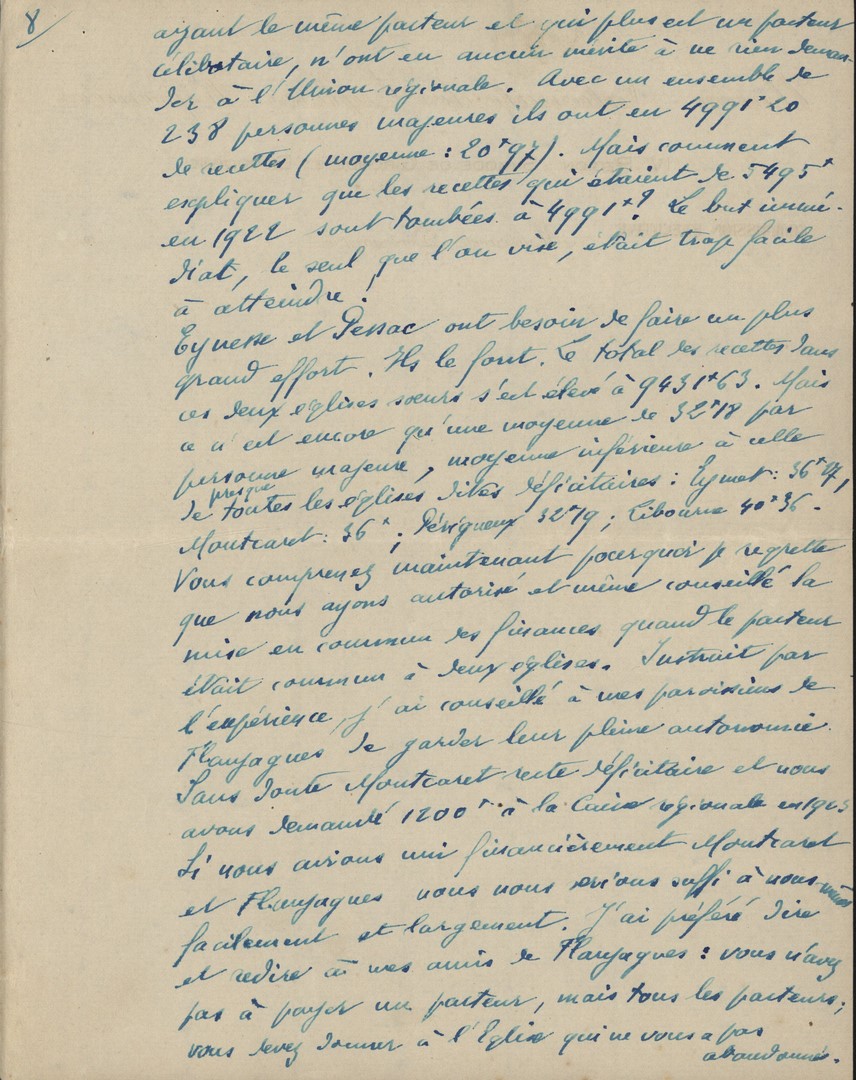 8
ayant le même pasteur et qui plus est un pasteur
célibataire, n'ont eu aucun mérite à ne rien deman-
der à l'Union régionale. Avec un ensemble de
238 personnes majeures ils ont eu 4991f20
de recettes (moyenne : 20f97). Mais comment
expliquer que les recettes qui étaient de 5495f
en 1922 sont tombées à 4991f? Le but immé-
diat, le seul que l'on vise, était trop facile
à atteindre !
Eynesse et Pessac ont besoin de faire un plus
grand effort. Ils le font. Le total des recettes dans
ces deux églises soeurs s'est élevé à 9431f63. Mais
ce n'est encore qu'une moyenne de 32f18 par
personne majeure, moyenne inférieure à celle
de presque toutes les églises dites déficitaires : Eymet : 36f17,
Montcaret : 36f ; Périgueux 32f19 ; Libourne 40f36.
Vous comprenez maintenant pourquoi je regrette
que nous ayons autorisé et même conseillé la
mise en commun des finances quand le pasteur
était commun à deux églises. Instruit par
l'expérience, j'ai conseillé à mes paroissiens de
Flaujagues de garder leur pleine autonomie.
Sans doute Montcaret reste déficitaire et nous
avons demandé 1200f à la Caisse régionale en
Si nous avions uni financièrement Montcaret
et Flaujagues nous nous serions suffi à nous-mêmes
facilement et largement. J'ai préféré dire
et redire à mes amis de Flaujagues : vous n'avez
pas à payer un pasteur, mais tous les pasteurs ;
vous devez donner à l'Eglise qui ne vous a pas
abandonnés.